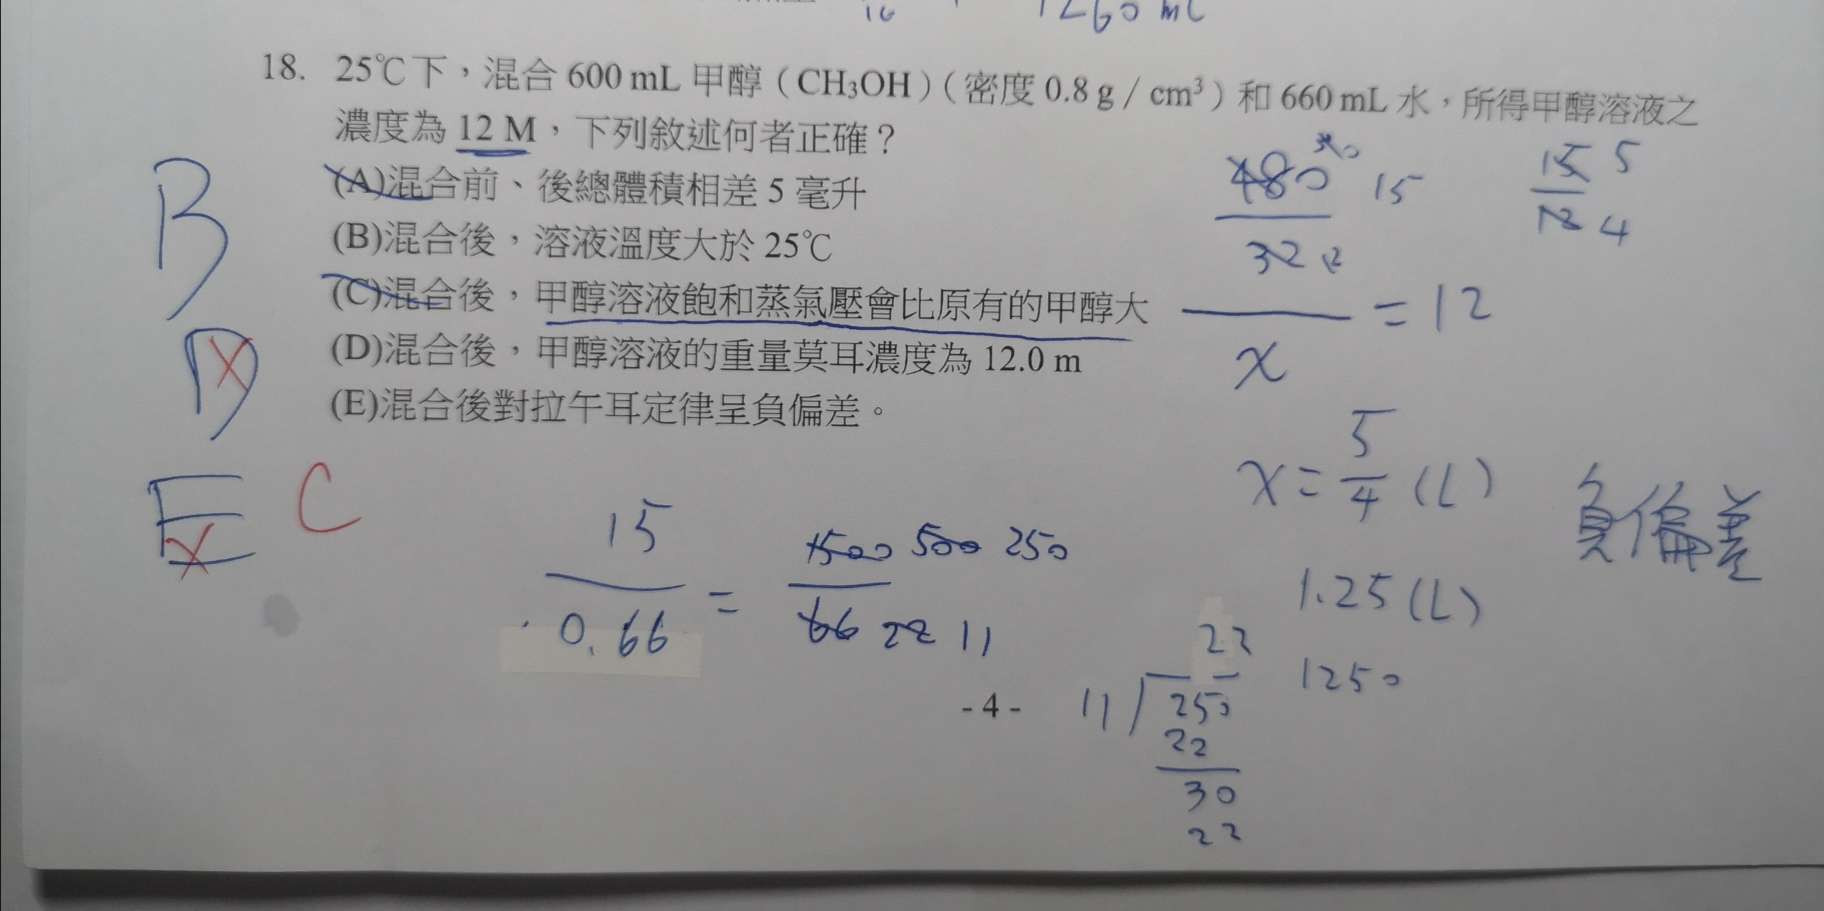 16 1260 mL
18. 25℃下，混合 600 mL 甲醇（CH₃OH）（密度 0.8 g / cm³）和 660 mL 水，所得甲醇溶液之
濃度為 12 M，下列敘述何者正確？
(A)混合前、後總體積相差 5 毫升
(B)混合後，溶液溫度大於 25℃
(C)混合後，甲醇溶液飽和蒸氣壓會比原有的甲醇大
(D)混合後，甲醇溶液的重量莫耳濃度為 12.0 m
(E)混合後對拉午耳定律呈負偏差。
B
D X
E X C
480 15
32
x
= 12
15 5
12 4
x = 5/4 (L)
負偏差
1.25 (L)
1250
15/0.66 = 1500 500 250
66 22 11
22
11 250
22
30
22
- 4 -